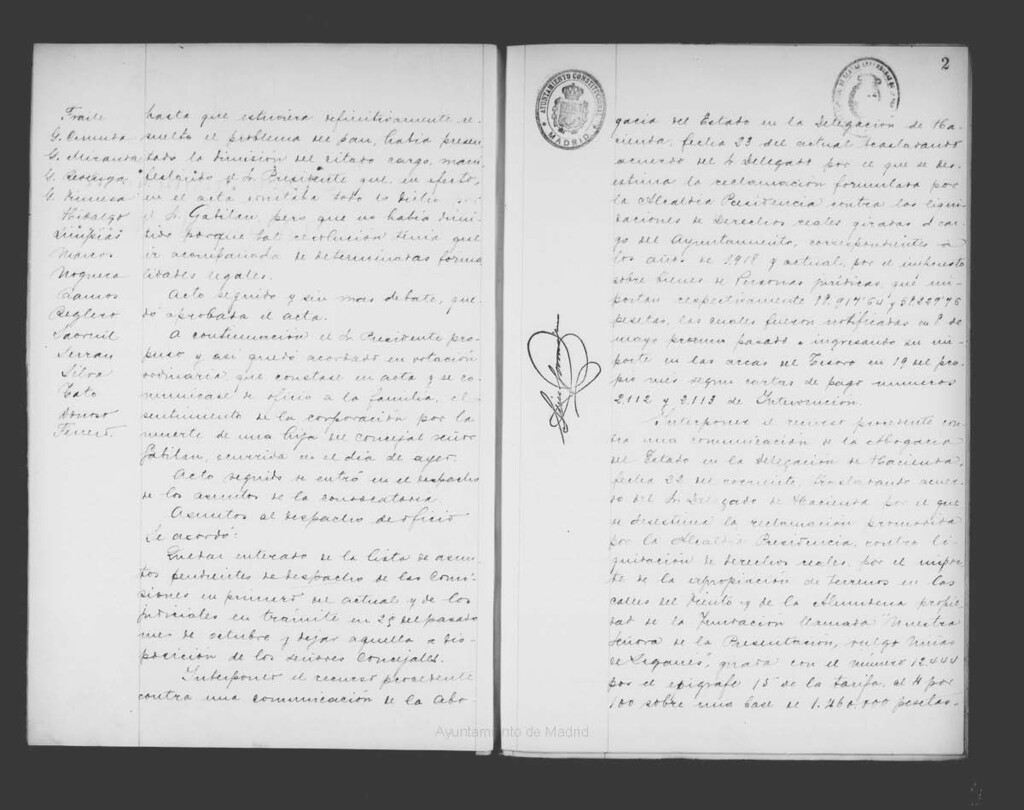 Fraile
G. Miranda
Hidalgo
Limpias
Marcos
Noguera
Ramos
Reglero
Saornil
Serran
Silva
Tato
Donoso
Ferrero.
hasta que estuviera definitivamente re-
suelto el problema del pan, habia presen-
tado la dimisión del citado cargo, mani-
festando el Sr. Presidente que, en efecto,
en el acta constaba todo lo dicho por
el Sr. Gabilan, pero que no habia dimi-
tido porque tal resolución tenia que
ir acompañada de determinadas forma-
lidades legales.
Acto seguido y sin mas debate, que-
dó aprobada el acta.
A continuación el Sr. Presidente pro-
puso y asi quedó acordado en votación
ordinaria, que constase en acta y se co-
municase de oficio a la familia, el
sentimiento de la corporación por la
muerte de una hija del concejal señor
Gabilan, ocurrida en el dia de ayer.
Acto seguido se entró en el despacho
de los asuntos de la convocatoria.
Asuntos al despacho de oficio
Se acordó:
Quedar enterado de la lista de asun-
tos pendientes de despacho de las Comi-
siones en primero del actual y de los
judiciales en trámite en 25 del pasado
mes de octubre y dejar aquella a dis-
posición de los señores Concejales.
Interponer el recurso procedente
contra una comunicación de la Abo-
AYUNTAMIENTO CONSTITUCIONAL
MADRID
2
gacia del Estado en la Delegación de Ha-
cienda, fecha 23 del actual trasladando
acuerdo del Sr. Delegado por el que se des-
estima la reclamación formulada por
la Alcaldia Presidencia contra las liqui-
daciones de Derechos reales giradas á car-
go del Ayuntamiento, correspondientes á
los años de 1918 y actual, por el impuesto
sobre bienes de Personas juridicas, que im-
portan respectivamente
pesetas, las cuales fueron notificadas en 8 de
mayo proximo pasado e ingresando su im-
porte en las arcas del Tesoro en 19 del pro-
pio mes segun cartas de pago numeros
2.112 y 2.113 de Intervención.
Interponer el recurso procedente con-
tra una comunicación de la Abogacia
del Estado en la Delegación de Hacienda,
fecha 23 del corriente, trasladando acuer-
do del Sr. Delegado de Hacienda por el que
se desestima la reclamación promovida
por la Alcaldia Presidencia, contra li-
quidación de derechos reales, por el impor-
te de la expropiación de terrenos en las
calles del Viento y de la Almudena propie-
dad de la Fundación llamada "Nuestra
Señora de la Presentación, vulgo Niñas
de Leganés", girada con el número 12.444
por el epigrafe 15 de la tarifa, al 4 por
100 sobre una base de 1.460.000 pesetas.
Ayuntamiento de Madrid